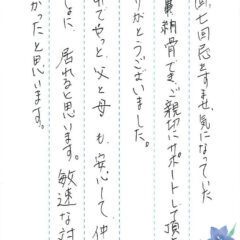 七回忌をすませ気になっていた
納骨でき、ご親切にサポートして頂
りがとうございました。
でやっと、父と母も、安心して、仲
しょに居れると思います。敏速な対
かったと思います。